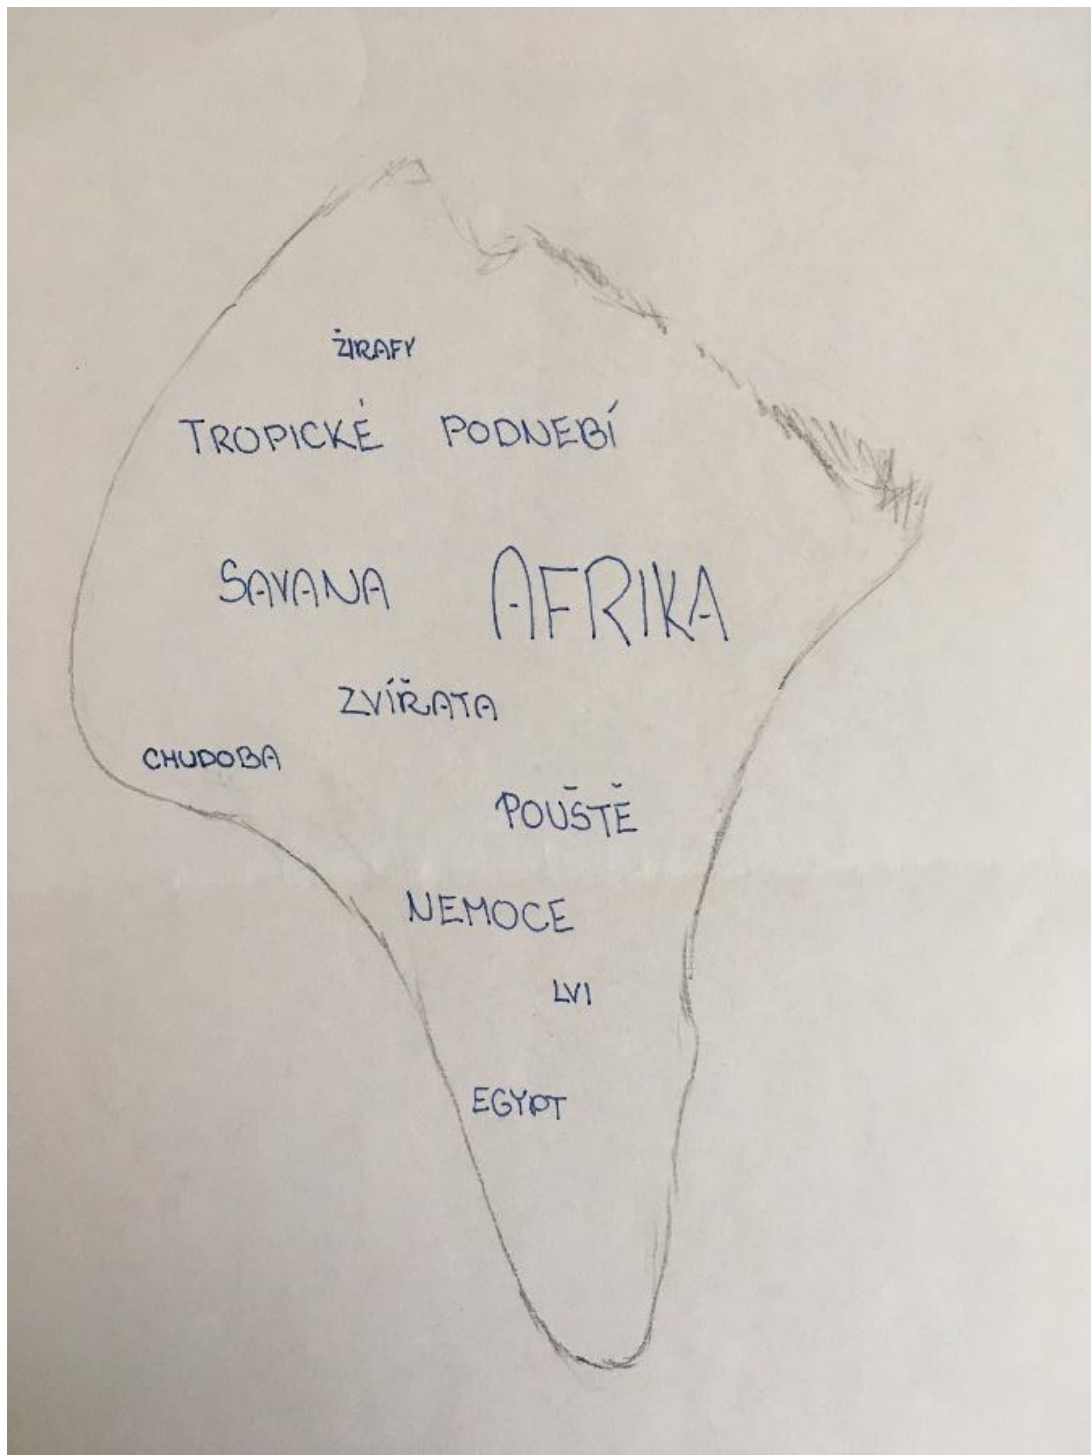 ŽIRAFY
TROPICKÉ PODNEBÍ
SAVANA AFRIKA
ZVÍŘATA
CHUDOBA
POUŠTĚ
NEMOCE
LVI
EGYPT